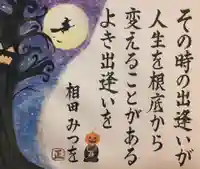 その時の出逢いが
人生を根底から
変えることがある
よき出逢いを
相田みつを
正